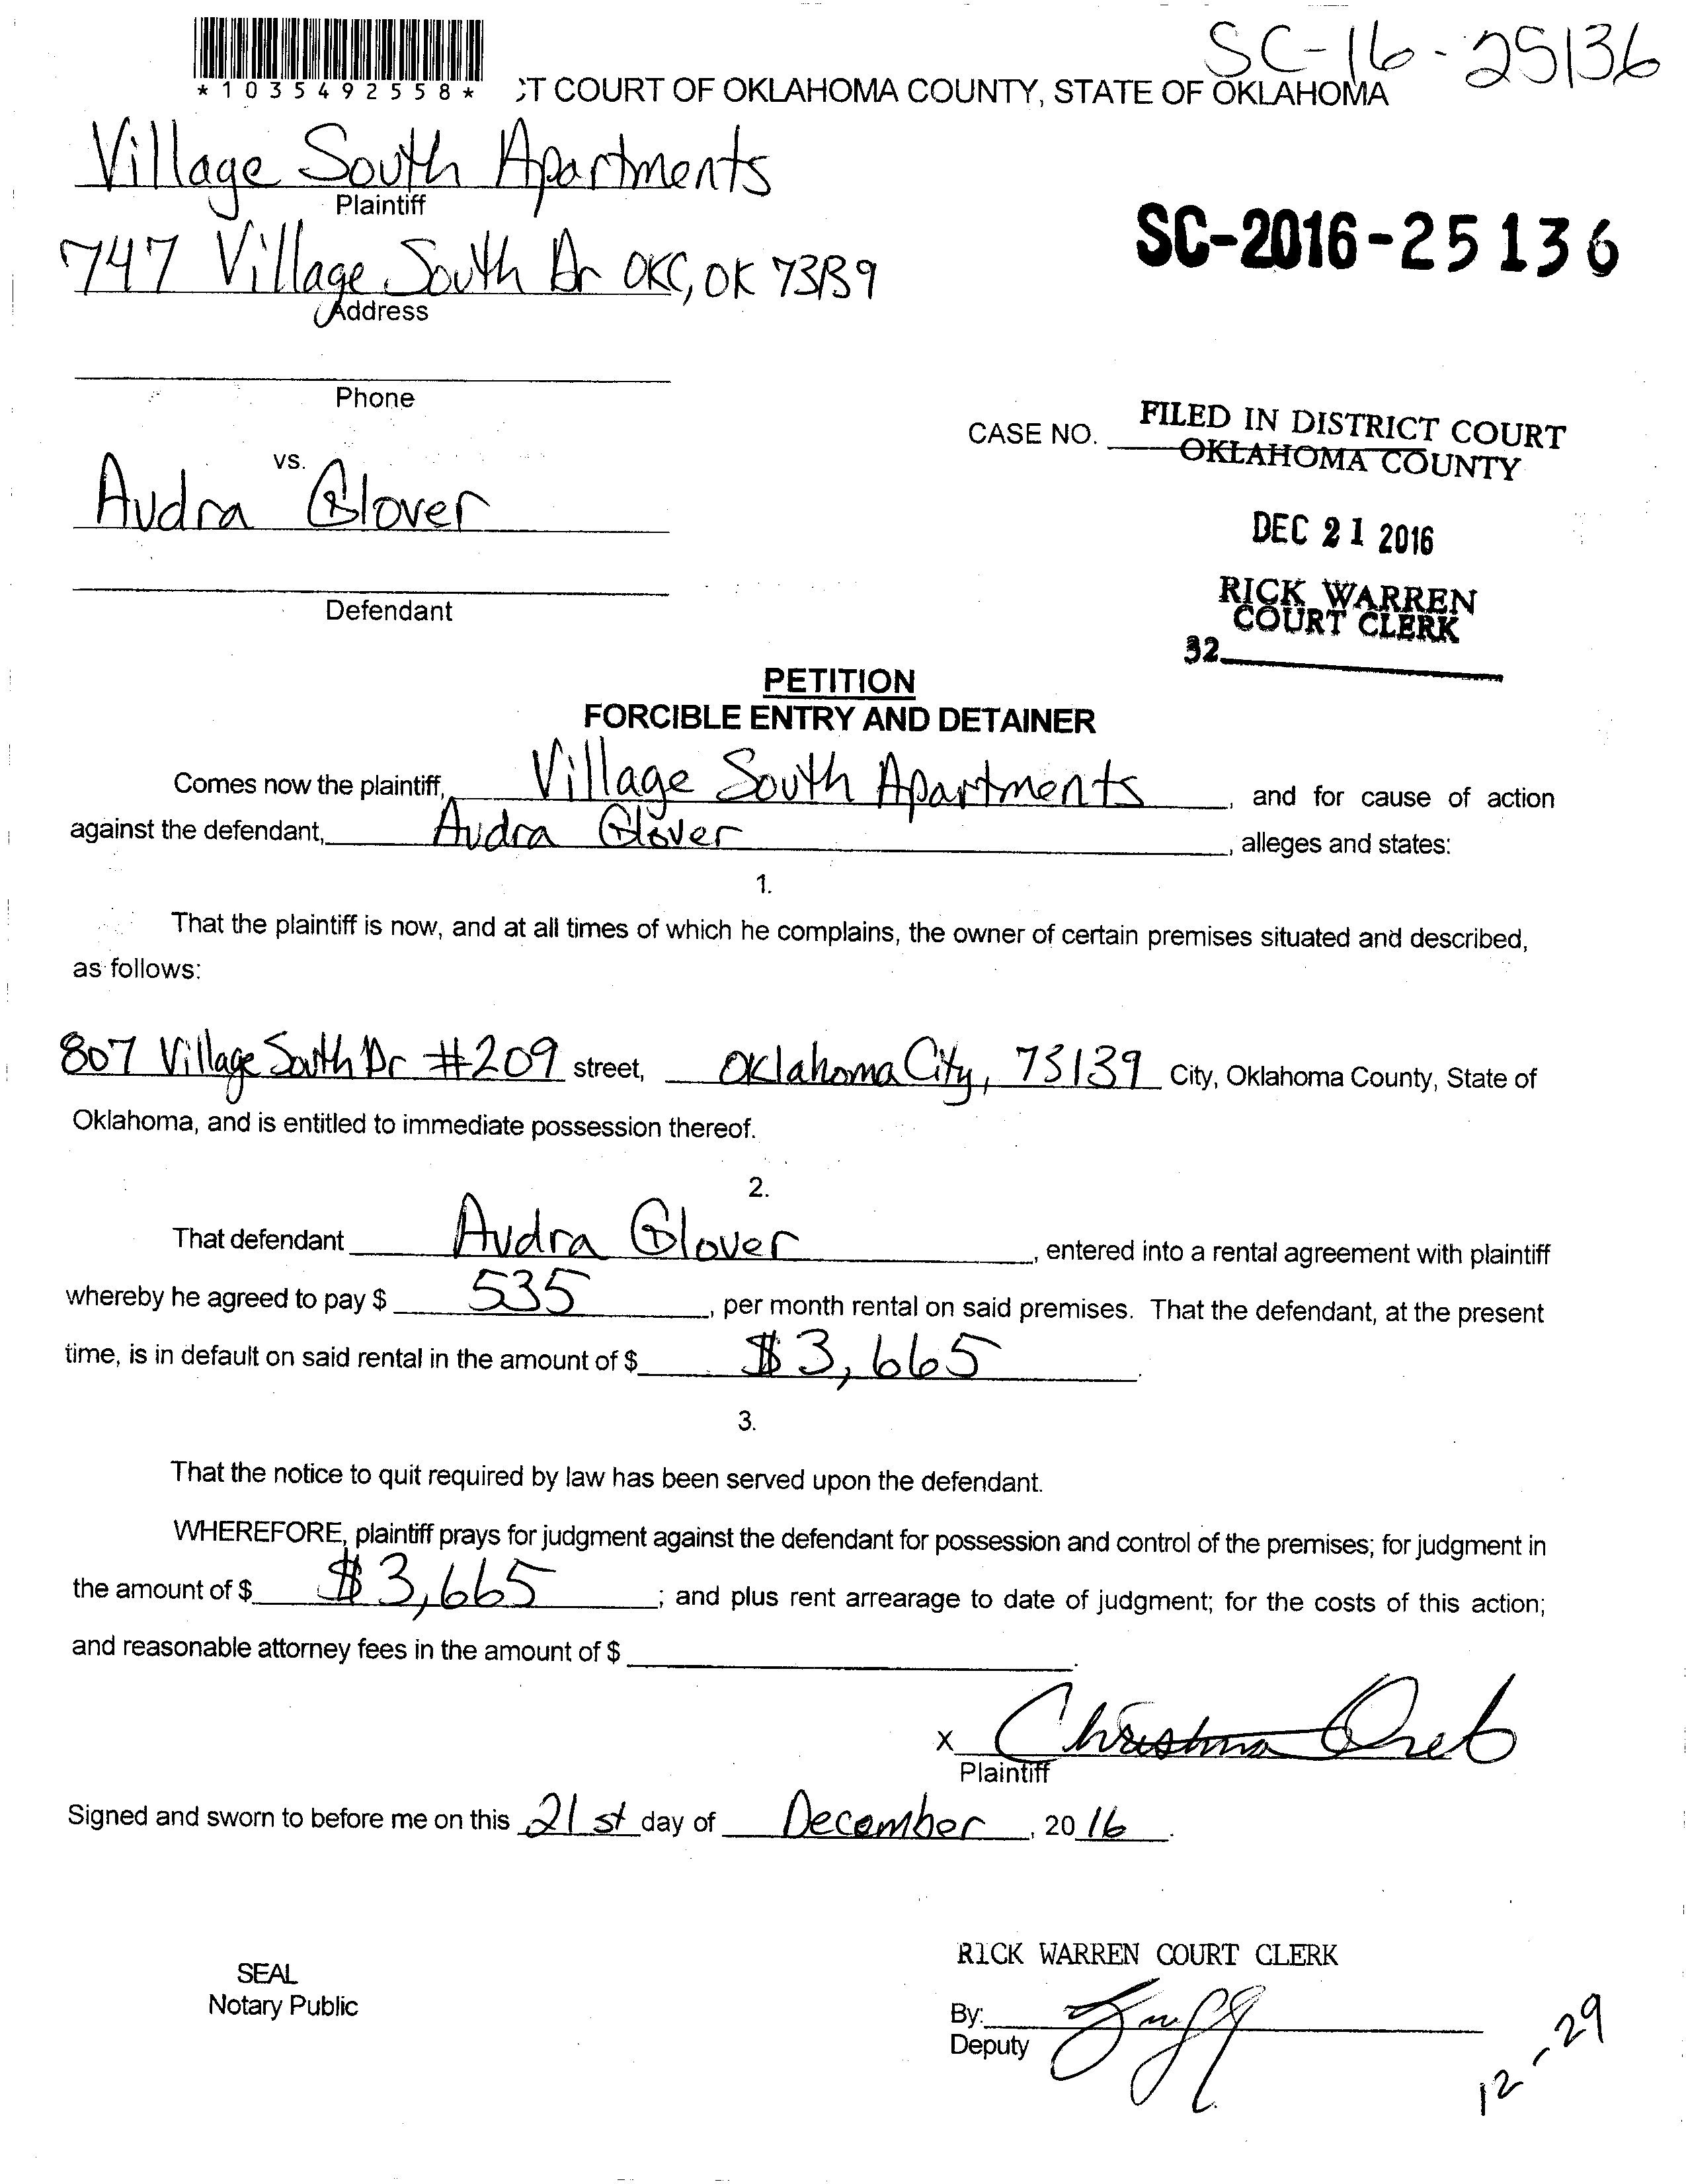 SC-16-25136
*1035492558*
T COURT OF OKLAHOMA COUNTY, STATE OF OKLAHOMA
Village South Apartments
Plaintiff
SC-2016-25136
747 Village South Dr OKC, OK 73139
Address
Phone
CASE NO.
FILED IN DISTRICT COURT
OKLAHOMA COUNTY
vs.
Audra Glover
DEC 21 2016
Defendant
RICK WARREN
COURT CLERK
32
PETITION
FORCIBLE ENTRY AND DETAINER
Comes now the plaintiff, Village South Apartments, and for cause of action
against the defendant, Audra Glover, alleges and states:
1.
That the plaintiff is now, and at all times of which he complains, the owner of certain premises situated and described,
as follows:
807 Village South Dr #209 street, Oklahoma City, 73139 City, Oklahoma County, State of
Oklahoma, and is entitled to immediate possession thereof.
2.
That defendant Audra Glover, entered into a rental agreement with plaintiff
whereby he agreed to pay $ 535, per month rental on said premises. That the defendant, at the present
time, is in default on said rental in the amount of $ $3,665.
3.
That the notice to quit required by law has been served upon the defendant.
WHEREFORE, plaintiff prays for judgment against the defendant for possession and control of the premises; for judgment in
the amount of $ $3,665; and plus rent arrearage to date of judgment; for the costs of this action;
and reasonable attorney fees in the amount of $ .
X Christina
Plaintiff
Signed and sworn to before me on this 21st day of December, 2016.
RICK WARREN COURT CLERK
SEAL
Notary Public
By:
Deputy
12-29